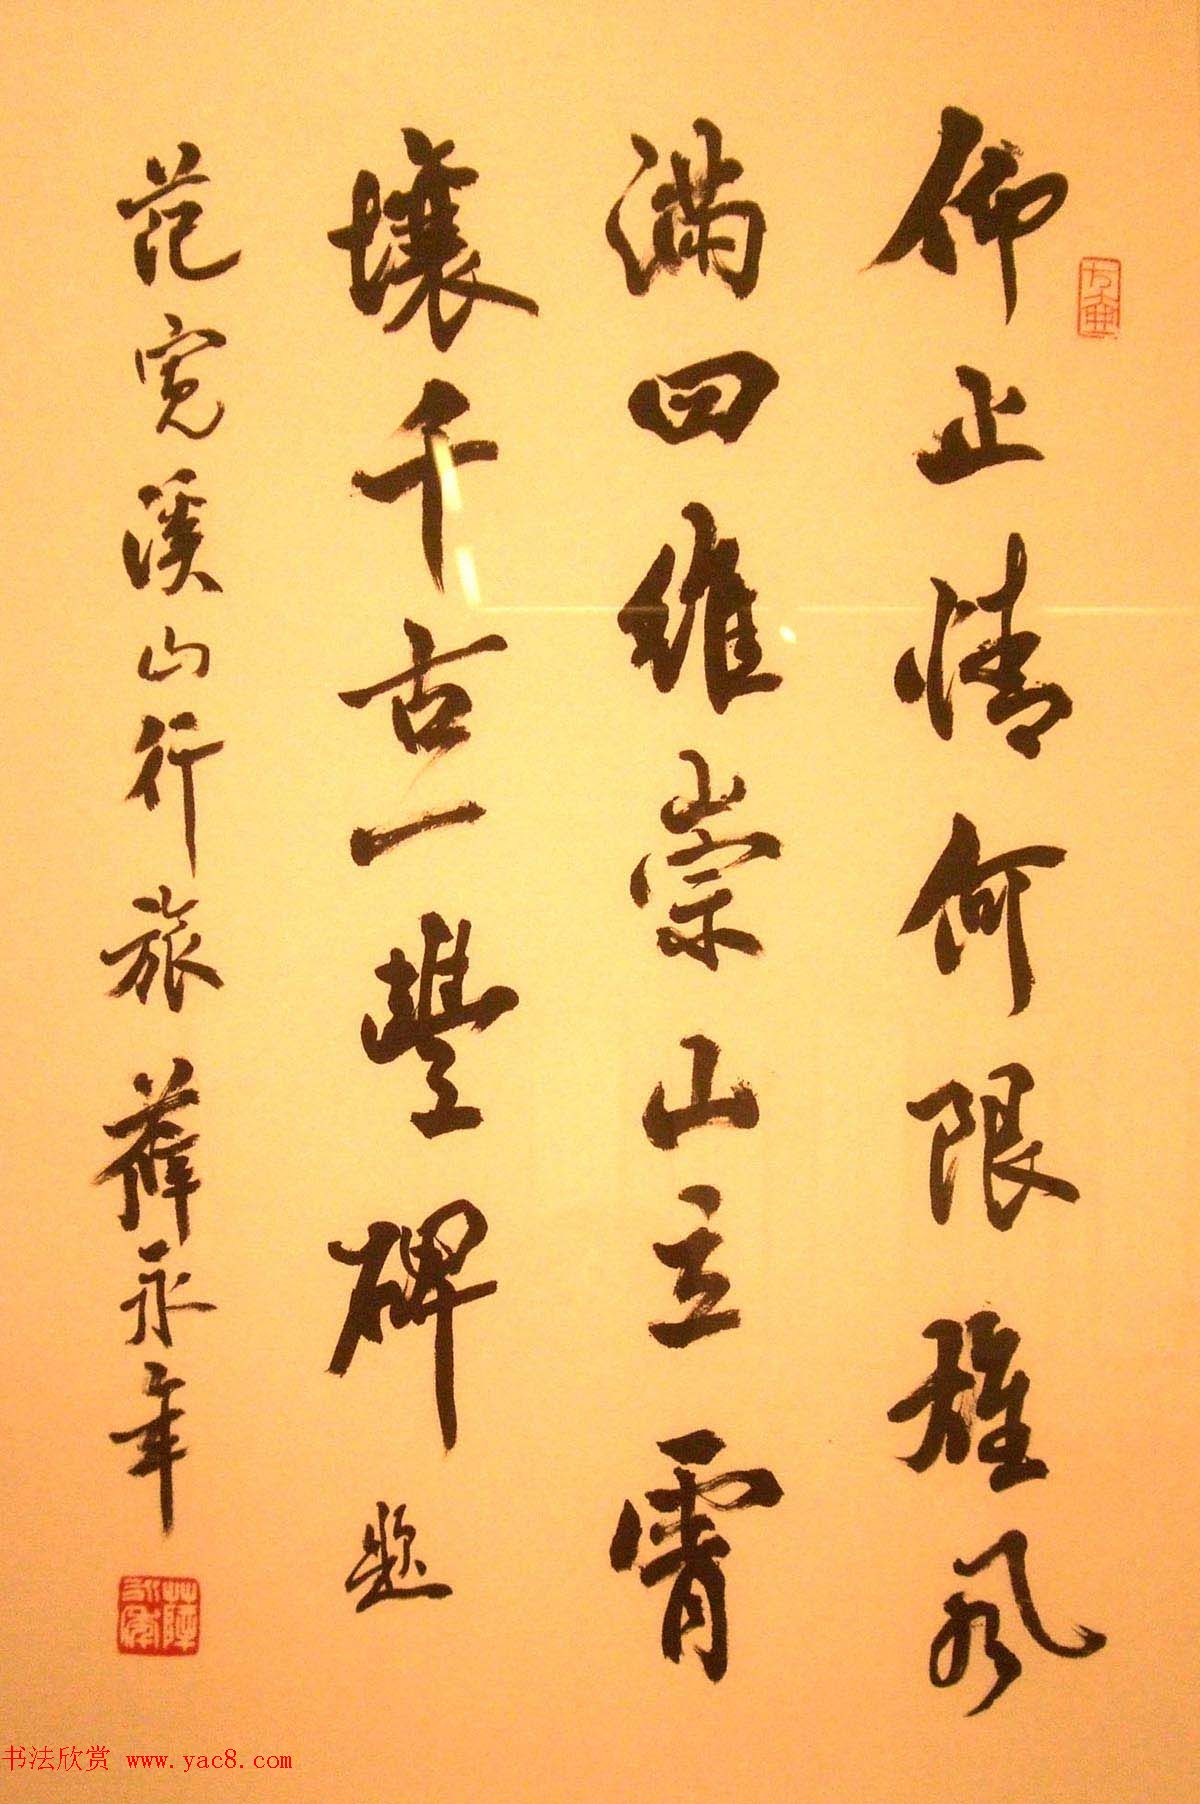 仰止情何限雄风
满四维崇山立霄
壤千古一丰碑 题
范宽溪山行旅 薛永年
薛永年
书法欣赏 www.yac8.com